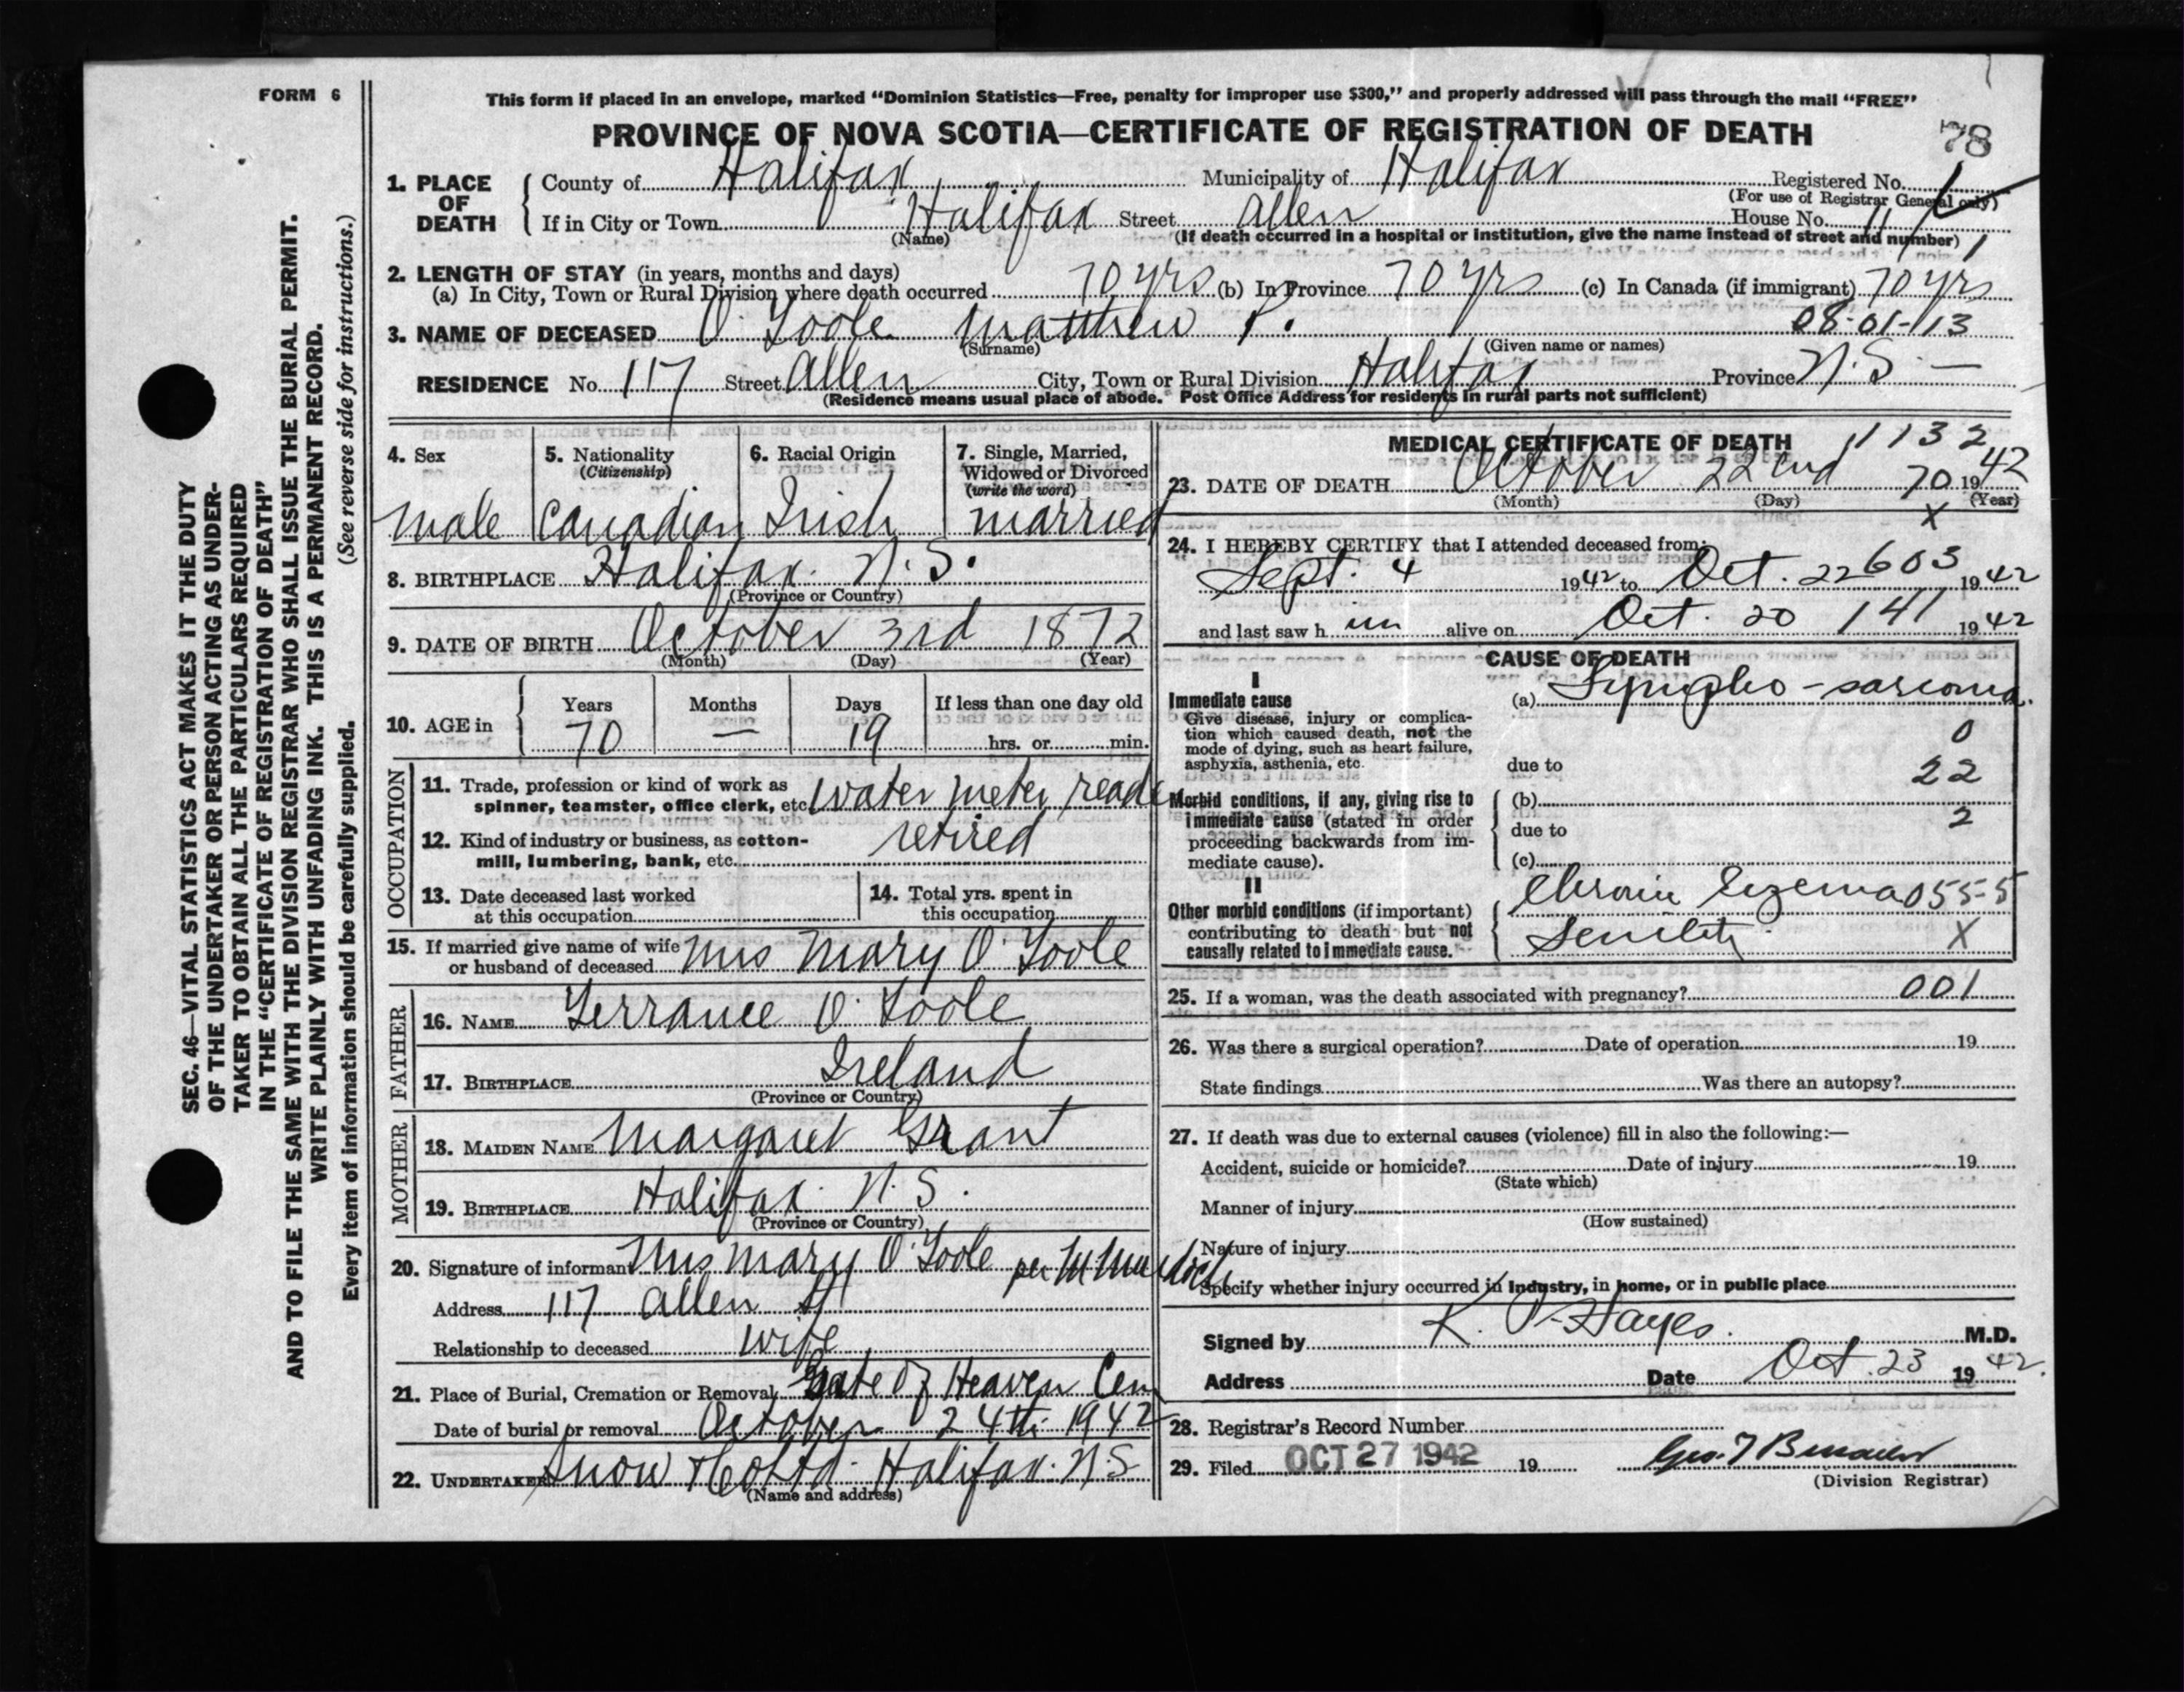 FORM 6
This form if placed in an envelope, marked "Dominion Statistics—Free, penalty for improper use $300," and properly addressed will pass through the mail "FREE"
PROVINCE OF NOVA SCOTIA—CERTIFICATE OF REGISTRATION OF DEATH
78
1. PLACE OF DEATH
County of Halifax Municipality of Halifax Registered No.
(For use of Registrar General only)
If in City or Town Halifax Street Allen House No.
(Name) (If death occurred in a hospital or institution, give the name instead of street and number)
2. LENGTH OF STAY (in years, months and days)
(a) In City, Town or Rural Division where death occurred 70 yrs (b) In Province 70 yrs (c) In Canada (if immigrant) 70 yrs
3. NAME OF DECEASED O'Toole Matthew P. 08-01-113
(Surname) (Given name or names)
RESIDENCE No. 117 Street Allen City, Town or Rural Division Halifax Province N.S. —
(Residence means usual place of abode. Post Office Address for residents in rural parts not sufficient)
4. Sex
male
5. Nationality
(Citizenship)
Canadian
6. Racial Origin
Irish
7. Single, Married,
Widowed or Divorced
(write the word)
married
8. BIRTHPLACE Halifax. N.S.
(Province or Country)
9. DATE OF BIRTH October 3rd 1872
(Month) (Day) (Year)
10. AGE in
Years Months Days If less than one day old
70 — 19 hrs. or min.
OCCUPATION
11. Trade, profession or kind of work as
spinner, teamster, office clerk, etc. water meter reader
12. Kind of industry or business, as cotton-
mill, lumbering, bank, etc. retired
13. Date deceased last worked
at this occupation
14. Total yrs. spent in
this occupation
15. If married give name of wife
or husband of deceased Mrs Mary O'Toole
FATHER
16. NAME Terrance O'Toole
17. BIRTHPLACE Ireland
(Province or Country)
MOTHER
18. MAIDEN NAME Margaret Grant
19. BIRTHPLACE Halifax. N.S.
(Province or Country)
20. Signature of informant Mrs Mary O'Toole per
Address 117 Allen St
Relationship to deceased wife
21. Place of Burial, Cremation or Removal Gate Of Heaven Cem
Date of burial or removal October 24th 1942
22. UNDERTAKER Snow & Co Ltd. Halifax. N.S
(Name and address)
MEDICAL CERTIFICATE OF DEATH 1132
23. DATE OF DEATH October 22nd 70 1942
(Month) (Day) (Year)
X
24. I HEREBY CERTIFY that I attended deceased from:
Sept. 4 1942 to Oct. 22 603 1942
and last saw h im alive on Oct. 20 141 1942
CAUSE OF DEATH
I
Immediate cause
Give disease, injury or complica-
tion which caused death, not the
mode of dying, such as heart failure,
asphyxia, asthenia, etc.
(a) Lympho-sarcoma.
0
due to 22
Morbid conditions, if any, giving rise to
immediate cause (stated in order
proceeding backwards from im-
mediate cause).
(b)
due to 2
(c)
II
Other morbid conditions (if important)
contributing to death but not
causally related to immediate cause.
Chronic Eczema 055-5
Senility. X
25. If a woman, was the death associated with pregnancy? 001
26. Was there a surgical operation? Date of operation 19
State findings Was there an autopsy?
27. If death was due to external causes (violence) fill in also the following:—
Accident, suicide or homicide? Date of injury 19
(State which)
Manner of injury
(How sustained)
Nature of injury
Specify whether injury occurred in industry, in home, or in public place
Signed by K. P. Hayes. M.D.
Address Date Oct. 23 1942.
28. Registrar's Record Number
29. Filed OCT 27 1942 19
(Division Registrar)
SEC. 46—VITAL STATISTICS ACT MAKES IT THE DUTY
OF THE UNDERTAKER OR PERSON ACTING AS UNDER-
TAKER TO OBTAIN ALL THE PARTICULARS REQUIRED
IN THE "CERTIFICATE OF REGISTRATION OF DEATH"
AND TO FILE THE SAME WITH THE DIVISION REGISTRAR WHO SHALL ISSUE THE BURIAL PERMIT.
WRITE PLAINLY WITH UNFADING INK. THIS IS A PERMANENT RECORD.
Every item of information should be carefully supplied. (See reverse side for instructions.)